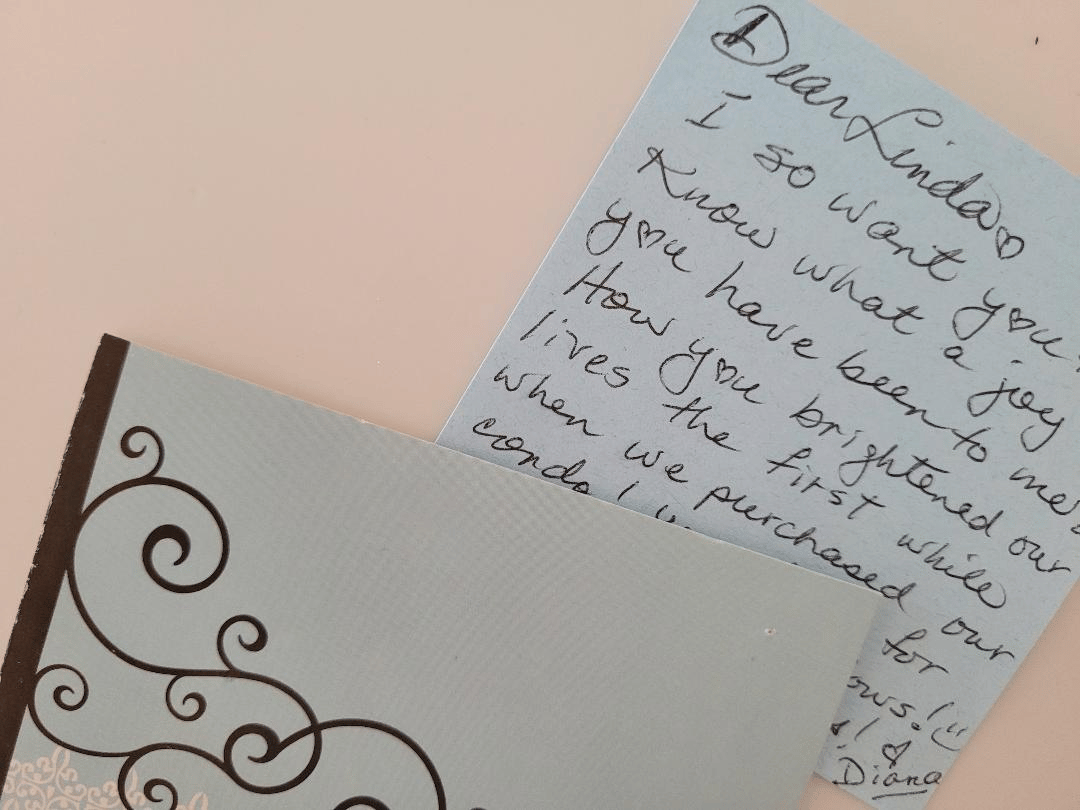 Dear Linda♡
I so want you
Know what a joy
you have been to me
How you brightened our
lives the first while
when we purchased our
condo I for
ows!
! &
Diana